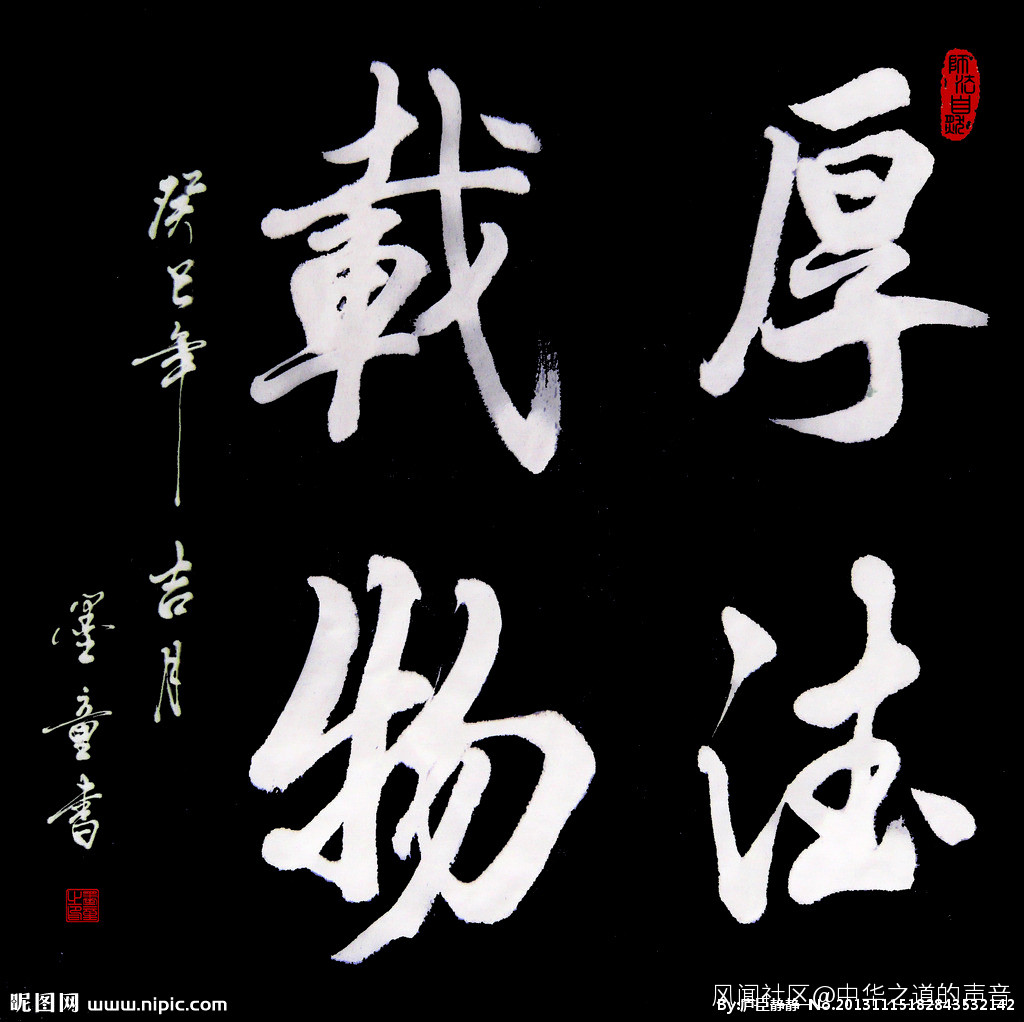 厚德
載物
癸巳年吉月
墨童书
师法自然
昵图网 www.nipic.com
风闻社区@中华之道的声音
By: No.20131115182843532142